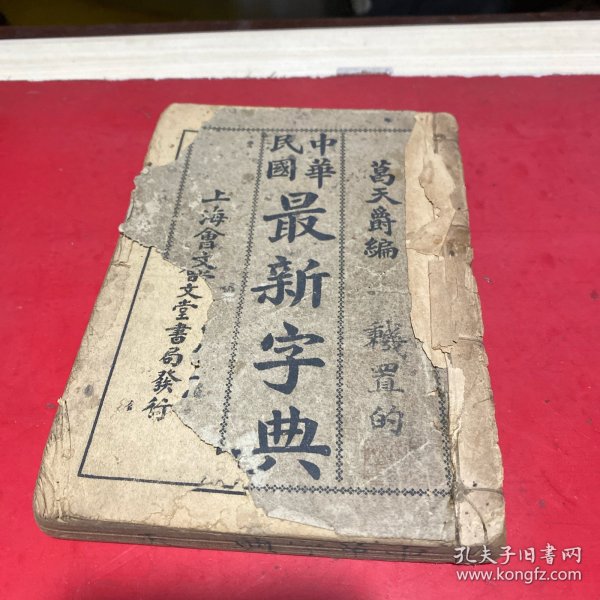 葛天爵編
置的
中華
民國
最新字典
上海會文
文堂書局發行
孔夫子旧书网
www.kongfz.com